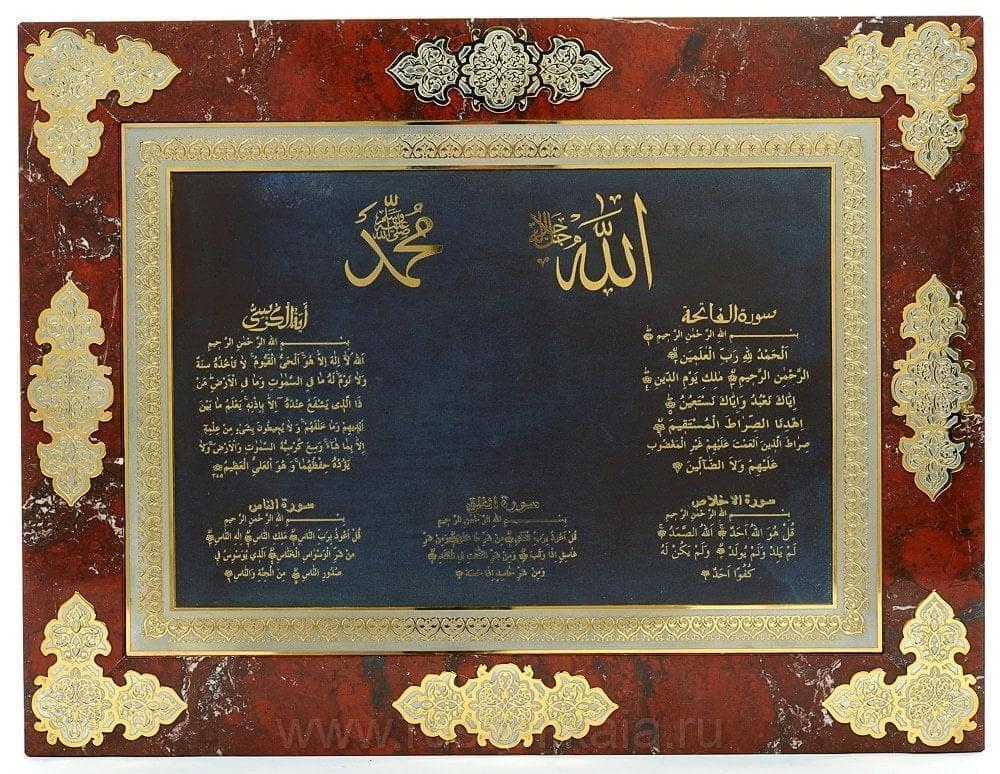 الله جل جلاله
محمد صلى الله عليه وسلم
سورة الفاتحة
بسم الله الرحمن الرحيم
الحمد لله رب العلمين
الرحمن الرحيم ملك يوم الدين
اياك نعبد واياك نستعين
اهدنا الصراط المستقيم
صراط الذين انعمت عليهم غير المغضوب
عليهم ولا الضآلين
أية الكرسي
بسم الله الرحمن الرحيم
الله لا اله الا هو الحي القيوم لا تأخذه سنة
ولا نوم له ما في السموت وما في الارض من
ذا الذي يشفع عنده الا باذنه يعلم ما بين
ايديهم وما خلفهم ولا يحيطون بشيء من علمه
الا بما شاء وسع كرسيه السموت والارض ولا
يؤده حفظهما وهو العلي العظيم ٢٥٥
سورة الاخلاص
بسم الله الرحمن الرحيم
قل هو الله احد الله الصمد
لم يلد ولم يولد ولم يكن له
كفوا احد
سورة الفلق
بسم الله الرحمن الرحيم
قل اعوذ برب الفلق من شر ما خلق ومن شر
غاسق اذا وقب ومن شر النفثت في العقد
ومن شر حاسد اذا حسد
سورة الناس
بسم الله الرحمن الرحيم
قل اعوذ برب الناس ملك الناس اله الناس
من شر الوسواس الخناس الذي يوسوس في
صدور الناس من الجنة والناس